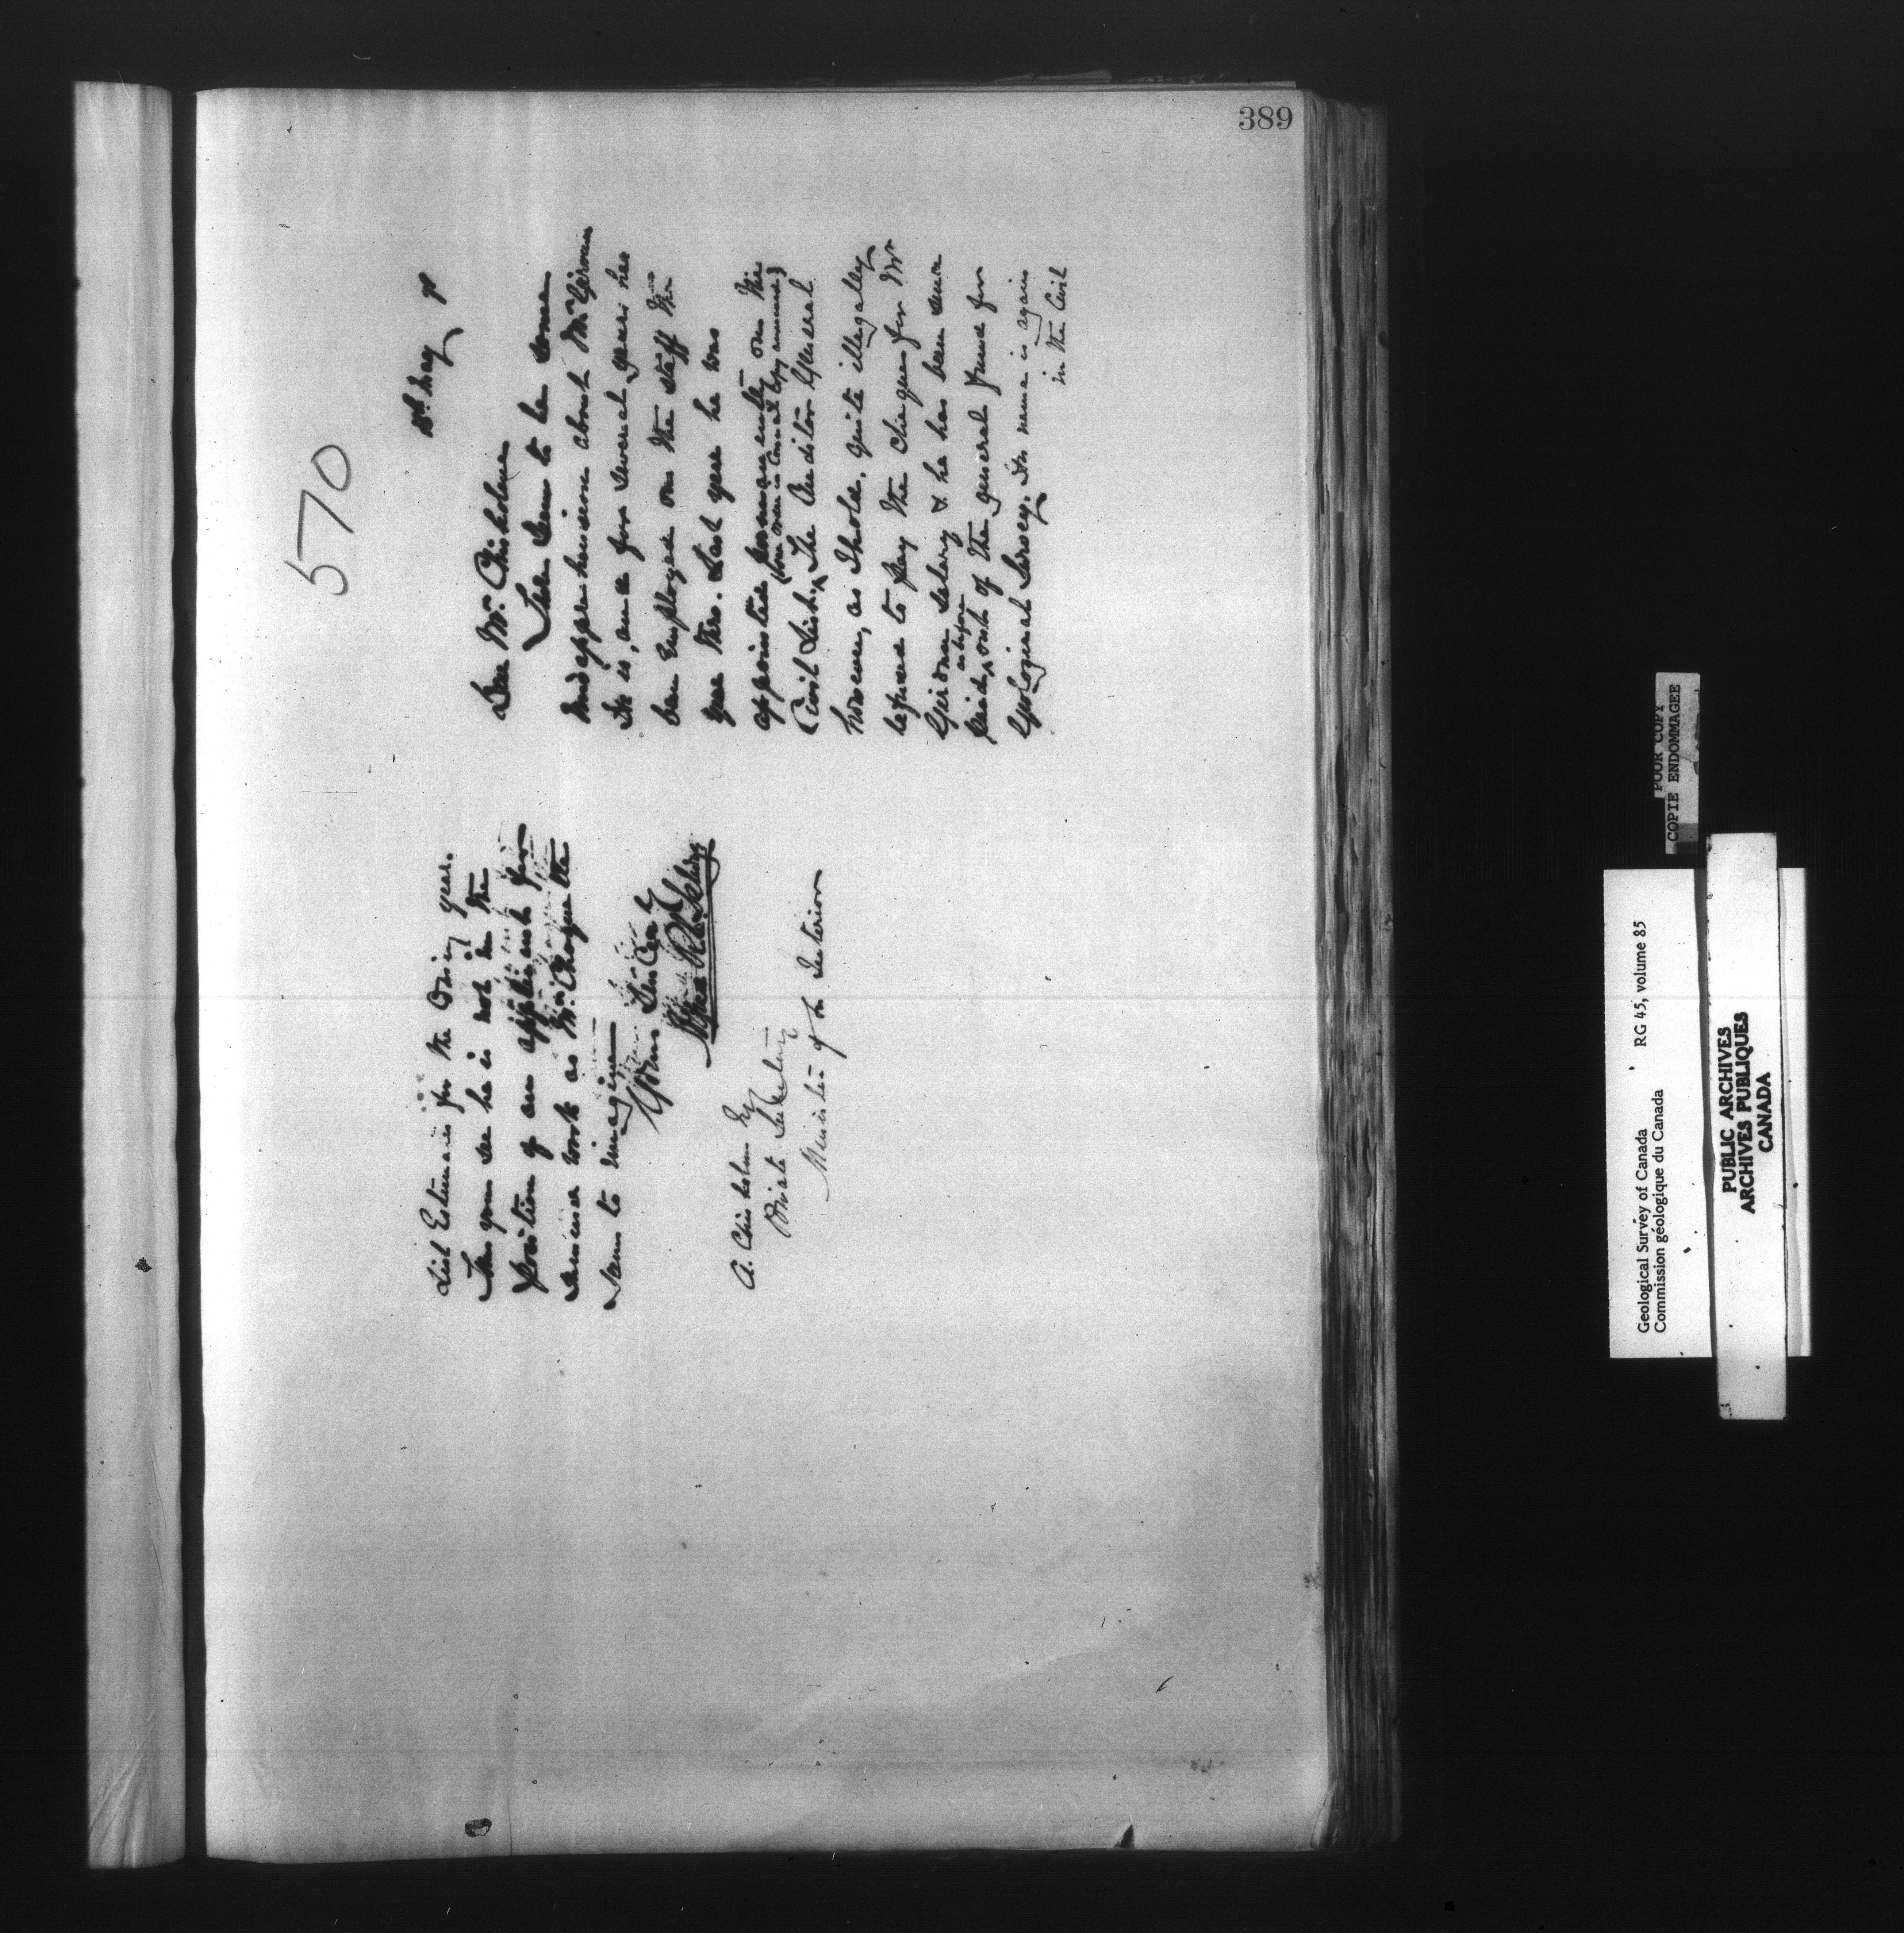 389
570
18th May 9
Dear Mr Chisholm
There seems to be some
misapprehension about Mr Giroux
He is, and for several years has
been employed on the staff the
year thro. Last year he was
appointed permanently on the
(see Order in Council Copy annexed)
Civil List. The Auditor General
however, as I hold, quite illegally
refused to pay the cheques for Mr
Giroux salary & he has been since
as before
paid, out of the general fund for
Geological Survey. His name is again
in the Civil
List Estimates for the coming year.
Thus you see he is not in the
position of an applicant for
summer work as Mr Choquette
seems to imagine
Yours Sincerely
Alfred R.C. Selwyn
A. Chisholm Esq
Private Secretary
Minister of the Interior
POOR COPY
COPIE ENDOMMAGEE
Geological Survey of Canada RG 45, volume 85
Commission géologique du Canada
PUBLIC ARCHIVES
ARCHIVES PUBLIQUES
CANADA